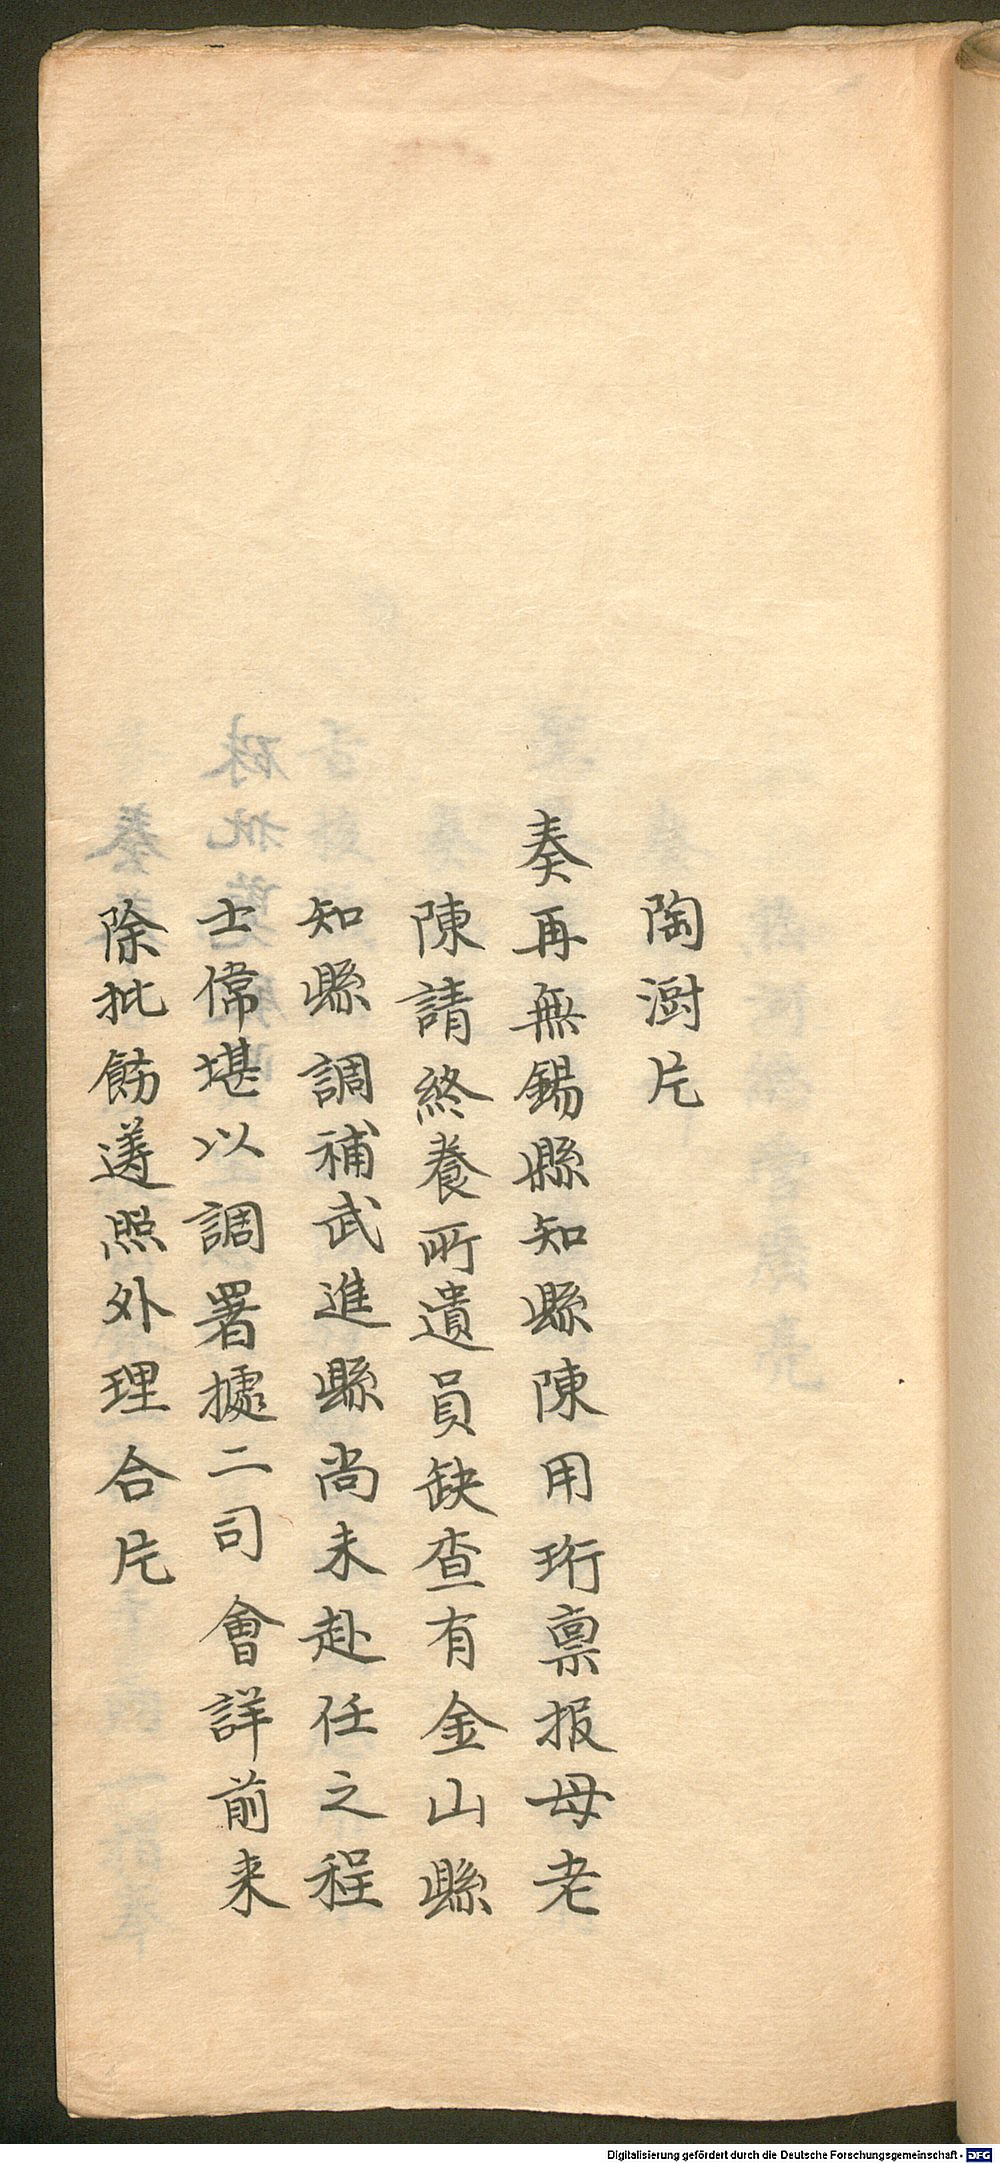 陶澍片
奏再無錫縣知縣陳用珩禀报母老
陳請終養所遺員缺查有金山縣
知縣調補武進縣尚未赴任之程
士偉堪以調署據二司會詳前来
除批飭遵照外理合片
Digitalisierung gefördert durch die Deutsche Forschungsgemeinschaft - DFG